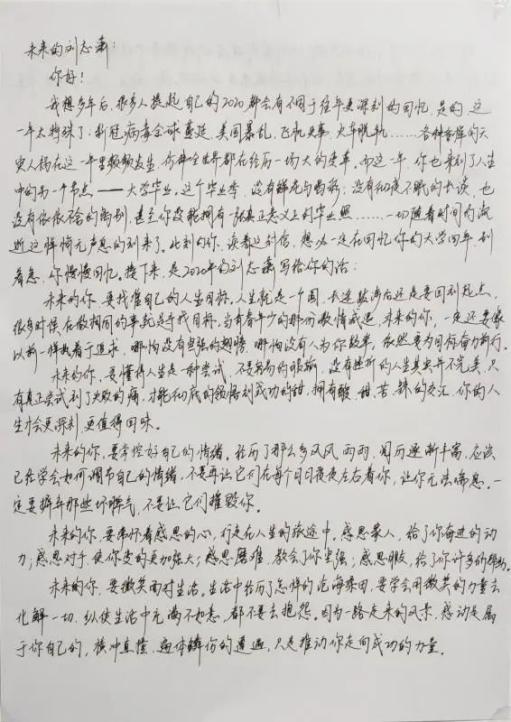 未来的刘志萧：
你好！
我想多年后，很多人提起自己的2020都会有不同于往年更深刻的回忆，是的，这
一年太特殊了：新冠病毒全球蔓延，美国暴乱，飞机失事，火车脱轨………各种各样的天
灾人祸在这一年里频频发生，仿佛全世界都在经历一场大的变革。而这一年，你也来到了人生
中的另一个节点——大学毕业。这个毕业季，没有鲜花与拥抱；没有彻夜不眠的长谈，也
没有依依不舍的离别，甚至你没能拥有一张真正意义上的毕业照………一切随着时间的流
逝这样悄无声息的到来了。此刻的你，读着这封信，想必一定在回忆你的大学四年，别
着急，你慢慢回忆。接下来，是2020年的刘志萧写给你的话：
未来的你，要找准自己的人生目标。人生就是一个圆，长途跋涉后还是要回到起点，
很多时候在做相同的事就是寻找目标。当青春年少的那份激情减退，未来的你，一定还要像
以前一样执着于追求，哪怕没有坚强的翅膀，哪怕没有人为你鼓掌，依然要为目标奋力前行。
未来的你，要懂得人生是一种尝试，不要轻易的服输，没有挫折的人生其实并不完美，只
有真正尝试到了失败的痛，才能彻底的领悟到成功的甜，拥有酸、甜、苦、辣的交汇，你的人
生才会更深刻，更值得回味。
未来的你，要掌控好自己的情绪。经历了那么多风风雨雨，阅历逐渐丰富，应该
已经学会如何调节自己的情绪，不要再让它们在每个日日夜夜左右着你，让你无法喘息。一
定要摒弃那些坏脾气，不要让它们摧毁你。
未来的你，要常怀着感恩的心，行走在人生的旅途中。感恩家人，给了你奋进的动
力；感恩对手，使你变的更加强大；感恩磨难，教会了你坚强；感恩朋友，给了你许多的帮助。
未来的你，要微笑面对生活。生活中经历了怎样的沧海桑田，要学会用微笑的力量去
化解一切，纵使生活中充满不如意，都不要去抱怨。因为一路走来的风景，感动是属
于你自己的，横冲直撞、遍体鳞伤的遭遇，只是推动你走向成功的力量。